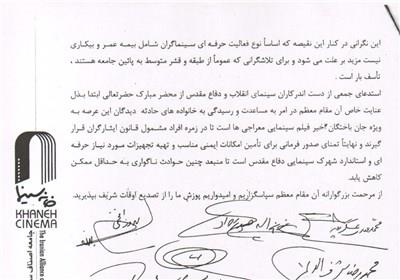 این نگرانی در کنار این نقیصه که اساساً نوع فعالیت حرفه ای سینماگران شامل بیمه عمر و بیکاری
نیست مزید بر علت می شود و برای تلاشگرانی که عموماً از طبقه و قشر متوسط به پائین جامعه هستند ،
تأسف بار است .
استدعای جمعی از دست اندرکاران سینمای انقلاب و دفاع مقدس از محضر مبارک حضرتعالی ابتدا بذل
عنایت خاص آن مقام معظم در امر به مساعدت و رسیدگی به خانواده های حادثه دیدگان این عرصه به
ویژه جان باختگان اخیر فیلم سینمایی معراجی ها است تا در زمره افراد مشمول قانون ایثارگران قرار
گیرند و نهایتاً تمنای صدور فرمانی برای تأمین امکانات ایمنی مناسب و تهیه تجهیزات مورد نیاز حرفه
ای و استاندارد شهرک سینمایی دفاع مقدس است تا منبعد چنین حوادث ناگواری به حداقل ممکن
کاهش یابد.
از مرحمت بزرگوارانه آن مقام معظم سپاسگزاریم و امیدواریم پوزش ما را از تصدیع اوقات شریف بپذیرید.
خانه سینما
KHANEH
CINEMA
جامعه اصناف
the Iranian Alliance